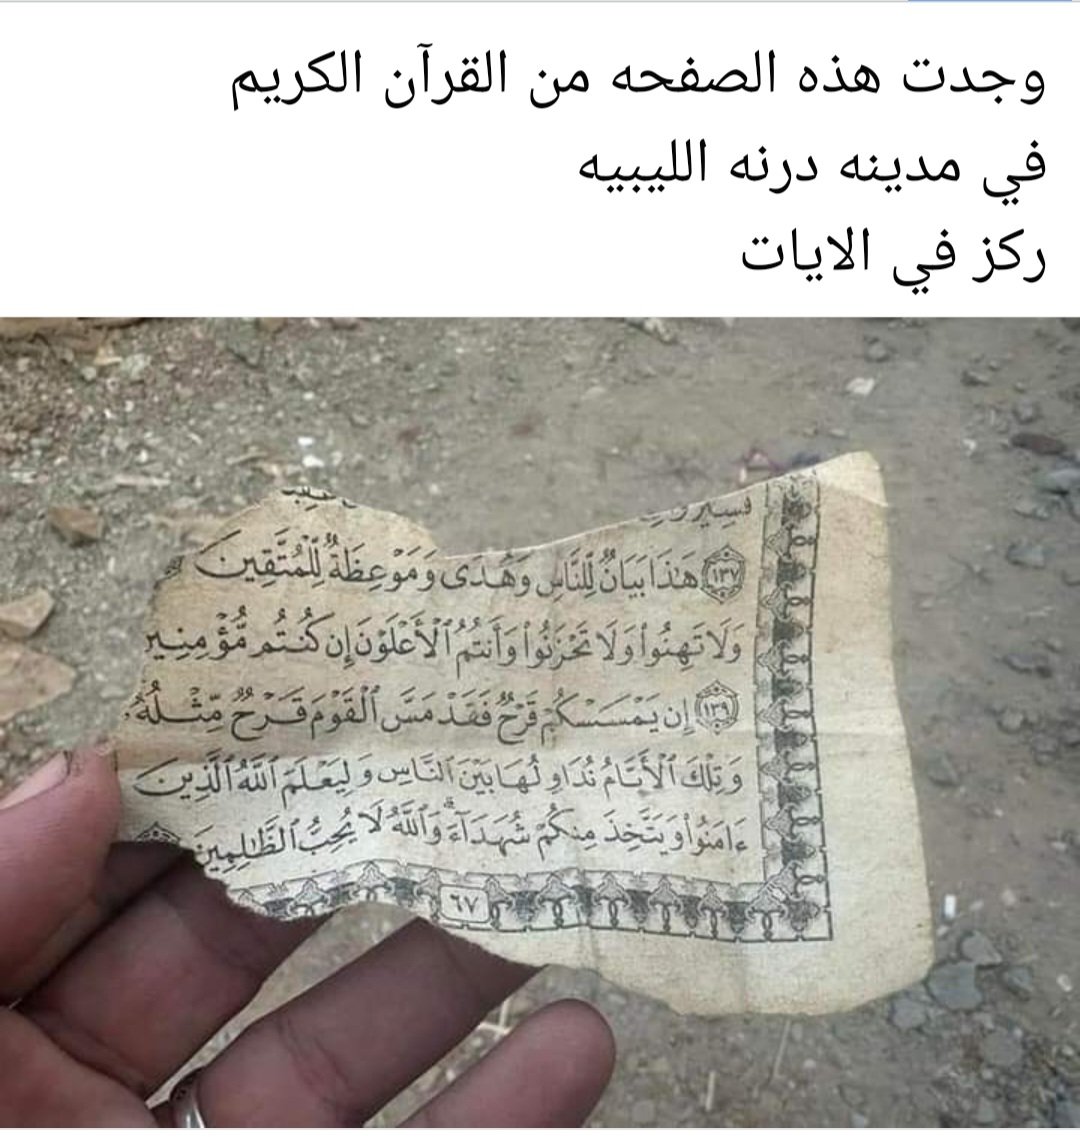 وجدت هذه الصفحه من القرآن الكريم
في مدينه درنه الليبيه
ركز في الايات
فسيروا
١٣٧ هَٰذَا بَيَانٌ لِّلنَّاسِ وَهُدًى وَمَوْعِظَةٌ لِّلْمُتَّقِينَ
وَلَا تَهِنُوا۟ وَلَا تَحْزَنُوا۟ وَأَنتُمُ ٱلْأَعْلَوْنَ إِن كُنتُم مُّؤْمِنِي
١٣٩ إِن يَمْسَسْكُمْ قَرْحٌ فَقَدْ مَسَّ ٱلْقَوْمَ قَرْحٌ مِّثْلُهُۥ
وَتِلْكَ ٱلْأَيَّامُ نُدَاوِلُهَا بَيْنَ ٱلنَّاسِ وَلِيَعْلَمَ ٱللَّهُ ٱلَّذِينَ
ءَامَنُوا۟ وَيَتَّخِذَ مِنكُمْ شُهَدَآءَ ۗ وَٱللَّهُ لَا يُحِبُّ ٱلظَّٰلِمِينَ
٦٧